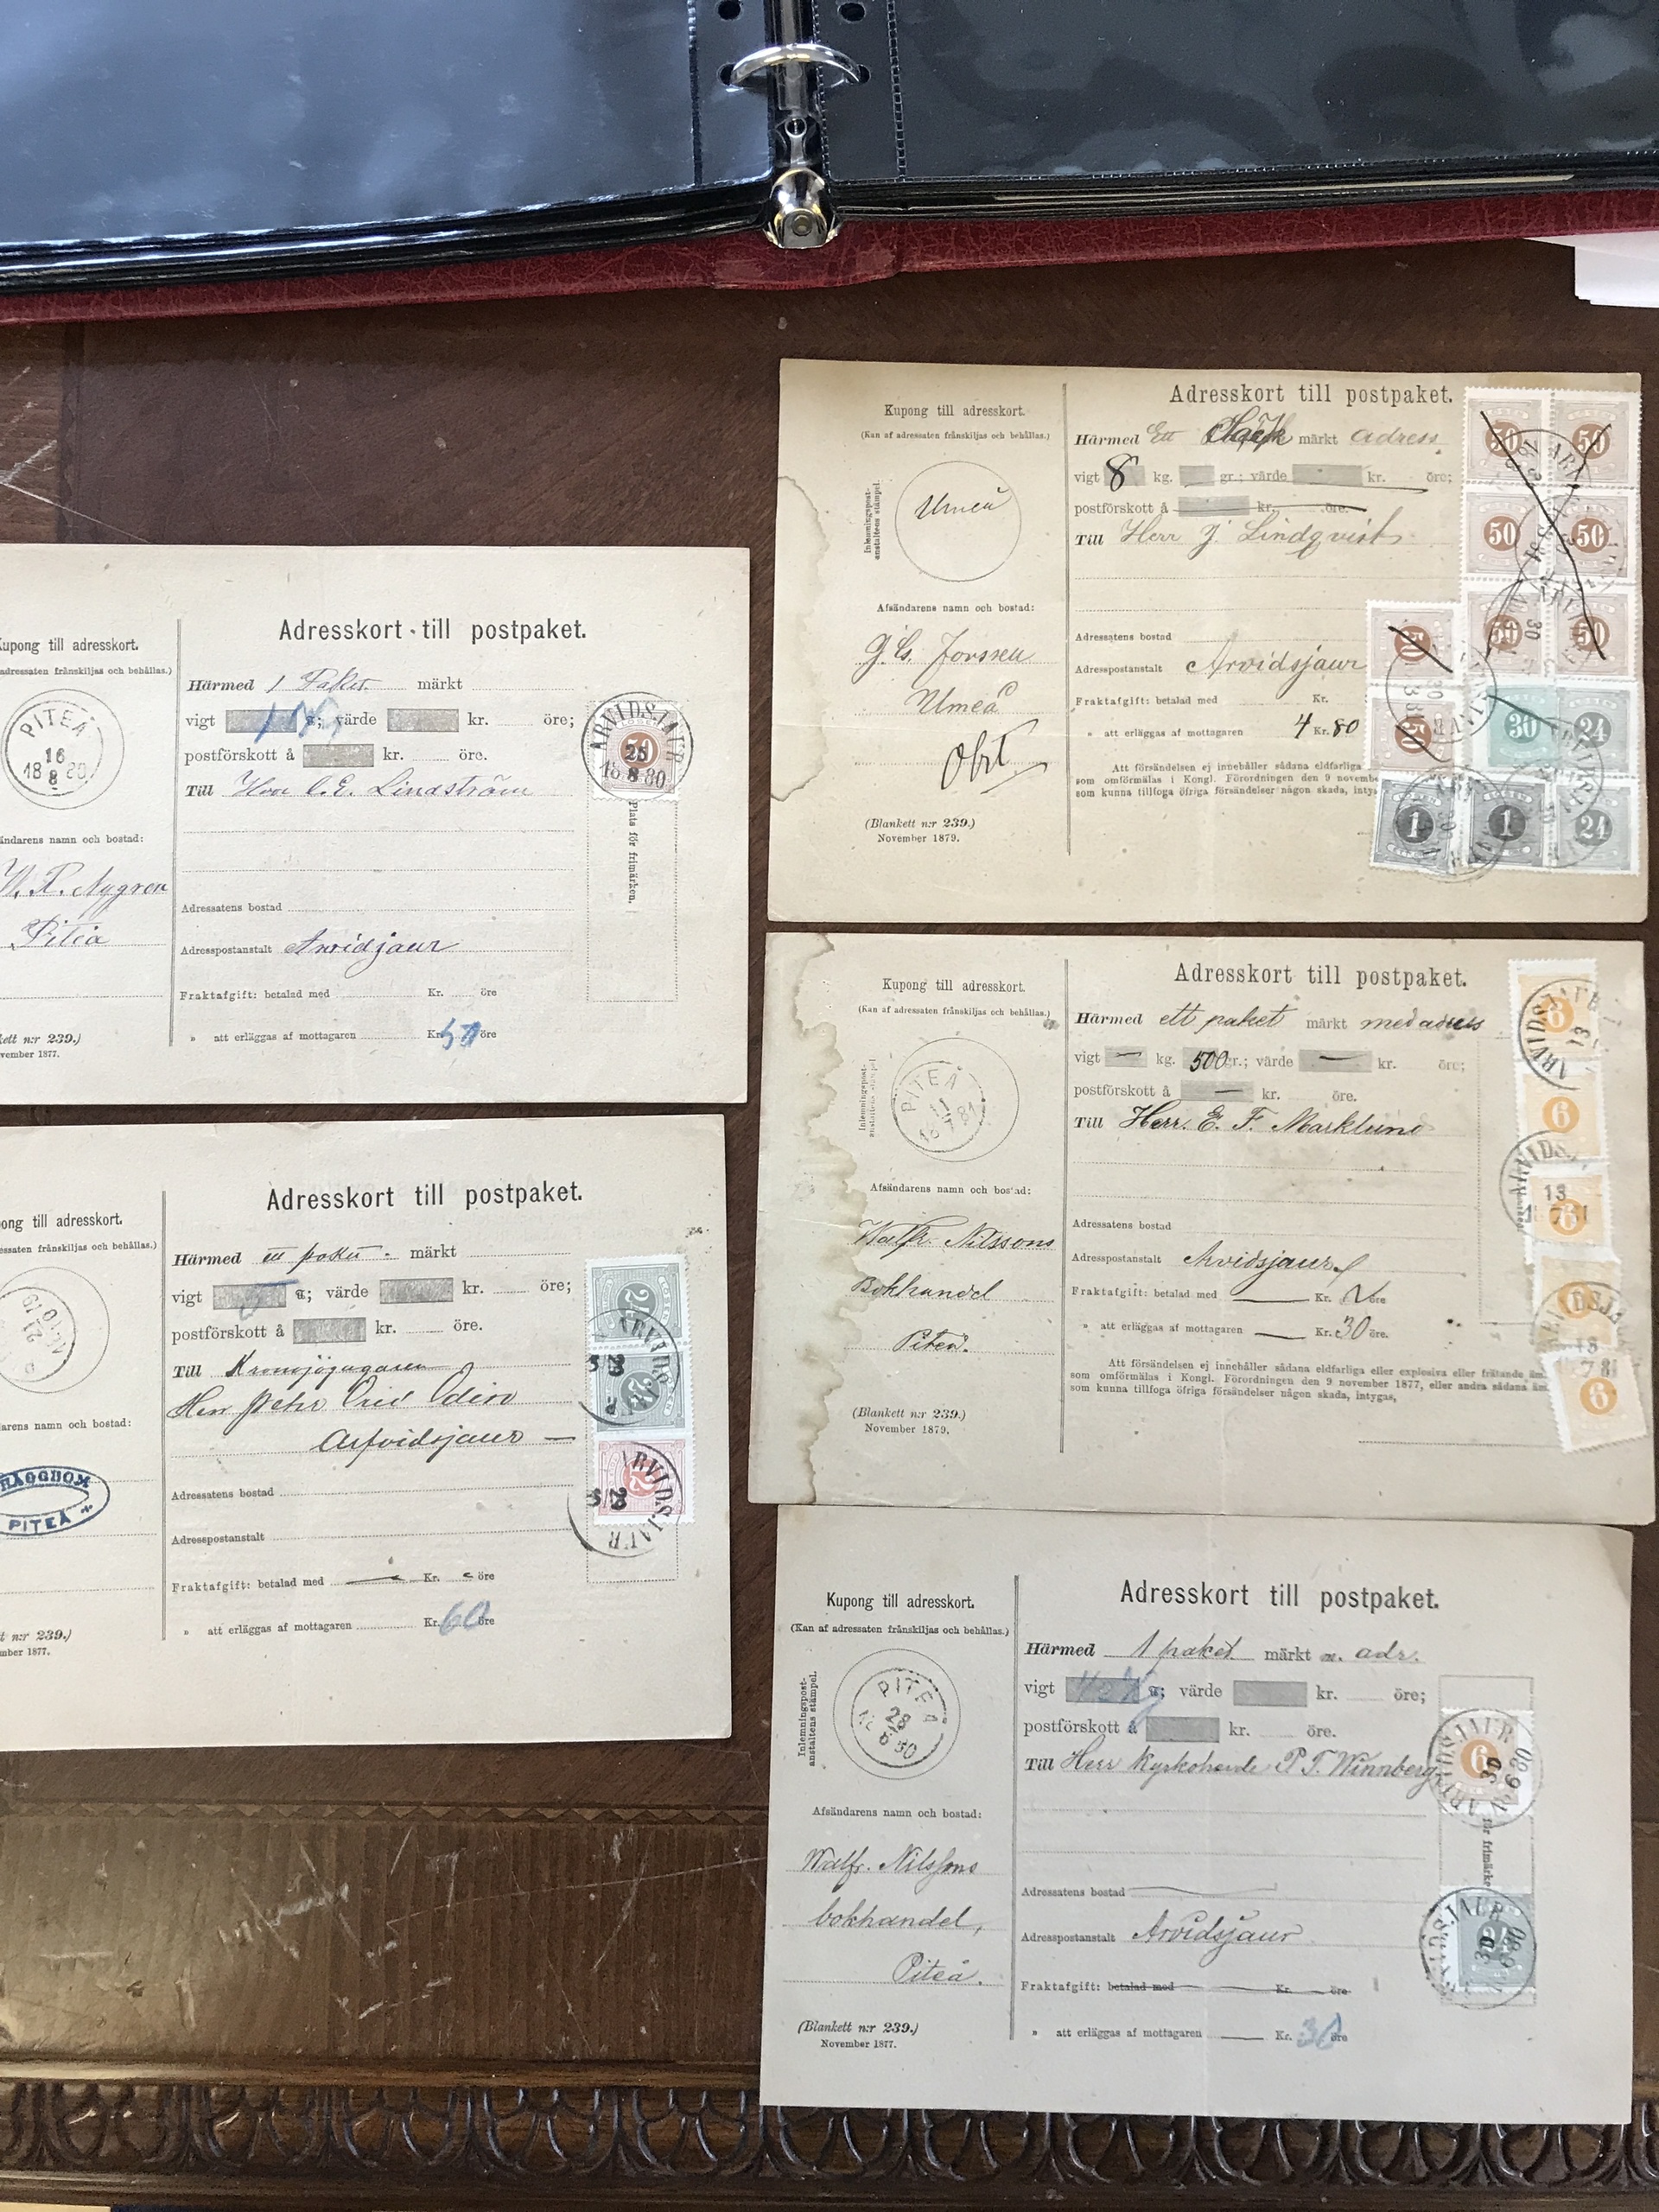 Adresskort till postpaket.
Kupong till adresskort.
adressaten frånskiljas och behållas.)
Härmed 1 Paket märkt
vigt kr. öre;
värde
PITEÅ
16
18 8 80
postförskott å kr. öre.
Till C. E. Lindström
ARVIDSJAUR
50
26
18 8 80
Plats för frimärken.
ändarens namn och bostad:
Nygren
Piteå
Adressatens bostad
Adresspostanstalt Arvidjaur
Fraktafgift: betalad med Kr. öre
" att erläggas af mottagaren Kr. 50 öre
nkett n:r 239.)
vember 1877.
Adresskort till postpaket.
ong till adresskort.
essaten frånskiljas och behållas.)
Härmed ett paket märkt
vigt värde kr. öre;
postförskott å kr. öre.
Till Kronojägaren
Herr Petter Oric Odin
Arfvidsjaur
24
24
20
ARVIDSJAUR
arens namn och bostad:
HÄGGBOM
PITEÅ
Adressatens bostad
Adresspostanstalt
Fraktafgift: betalad med Kr. öre
" att erläggas af mottagaren Kr. 60 öre
t n:r 239.)
mber 1877.
Adresskort till postpaket.
Kupong till adresskort.
(Kan af adressaten frånskiljas och behållas.)
Härmed Ett märkt adress
vigt 8 kg. gr.; värde kr. öre;
postförskott å kr. öre.
Till Herr J. Lindqvist
Inlemningspost-
anstaltens stämpel.
Umeå
Afsändarens namn och bostad:
Umeå
Adressatens bostad
Adresspostanstalt Arvidsjaur
Fraktafgift: betalad med Kr.
" att erläggas af mottagaren 4 Kr. 80
Att försändelsen ej innehåller sådana eldfarliga
som omförmälas i Kongl. Förordningen den 9 novembe
som kunna tillfoga öfriga försändelser någon skada, intyg
(Blankett n:r 239.)
November 1879.
50 50
50 50
50 50
50
50 30 24
1 1 24
Adresskort till postpaket.
Kupong till adresskort.
(Kan af adressaten frånskiljas och behållas.)
Härmed ett paket märkt med adress
vigt kg. 500 gr.; värde kr. öre;
postförskott å kr. öre.
Till Herr. E. F. Marklund
Inlemningspost-
anstaltens stämpel.
PITEÅ
11
18 7 81
Afsändarens namn och bostad:
Walfr. Nilssons
Bokhandel
Piteå.
Adressatens bostad
Adresspostanstalt Arvidsjaur
Fraktafgift: betalad med Kr. öre
" att erläggas af mottagaren Kr. 30 öre.
Att försändelsen ej innehåller sådana eldfarliga eller explosiva eller frätande äm
som omförmälas i Kongl. Förordningen den 9 november 1877, eller andra sådana äm
som kunna tillfoga öfriga försändelser någon skada, intygas,
(Blankett n:r 239.)
November 1879.
6
6
6
6
ARVIDSJAUR
13
Adresskort till postpaket.
Kupong till adresskort.
(Kan af adressaten frånskiljas och behållas.)
Härmed 1 paket märkt m. adr.
vigt värde kr. öre;
postförskott å kr. öre.
Till Herr Kyrkoherde P T. Winnberg
Inlemningspost-
anstaltens stämpel.
PITEÅ
28
Afsändarens namn och bostad:
Walfr. Nilssons
bokhandel,
Piteå.
Adressatens bostad
Adresspostanstalt Arvidsjaur
Fraktafgift: betalad med Kr. öre
" att erläggas af mottagaren Kr. 30 öre
(Blankett n:r 239.)
November 1877.
ARVIDSJAUR
6
för frimärke
ARVIDSJAUR
24